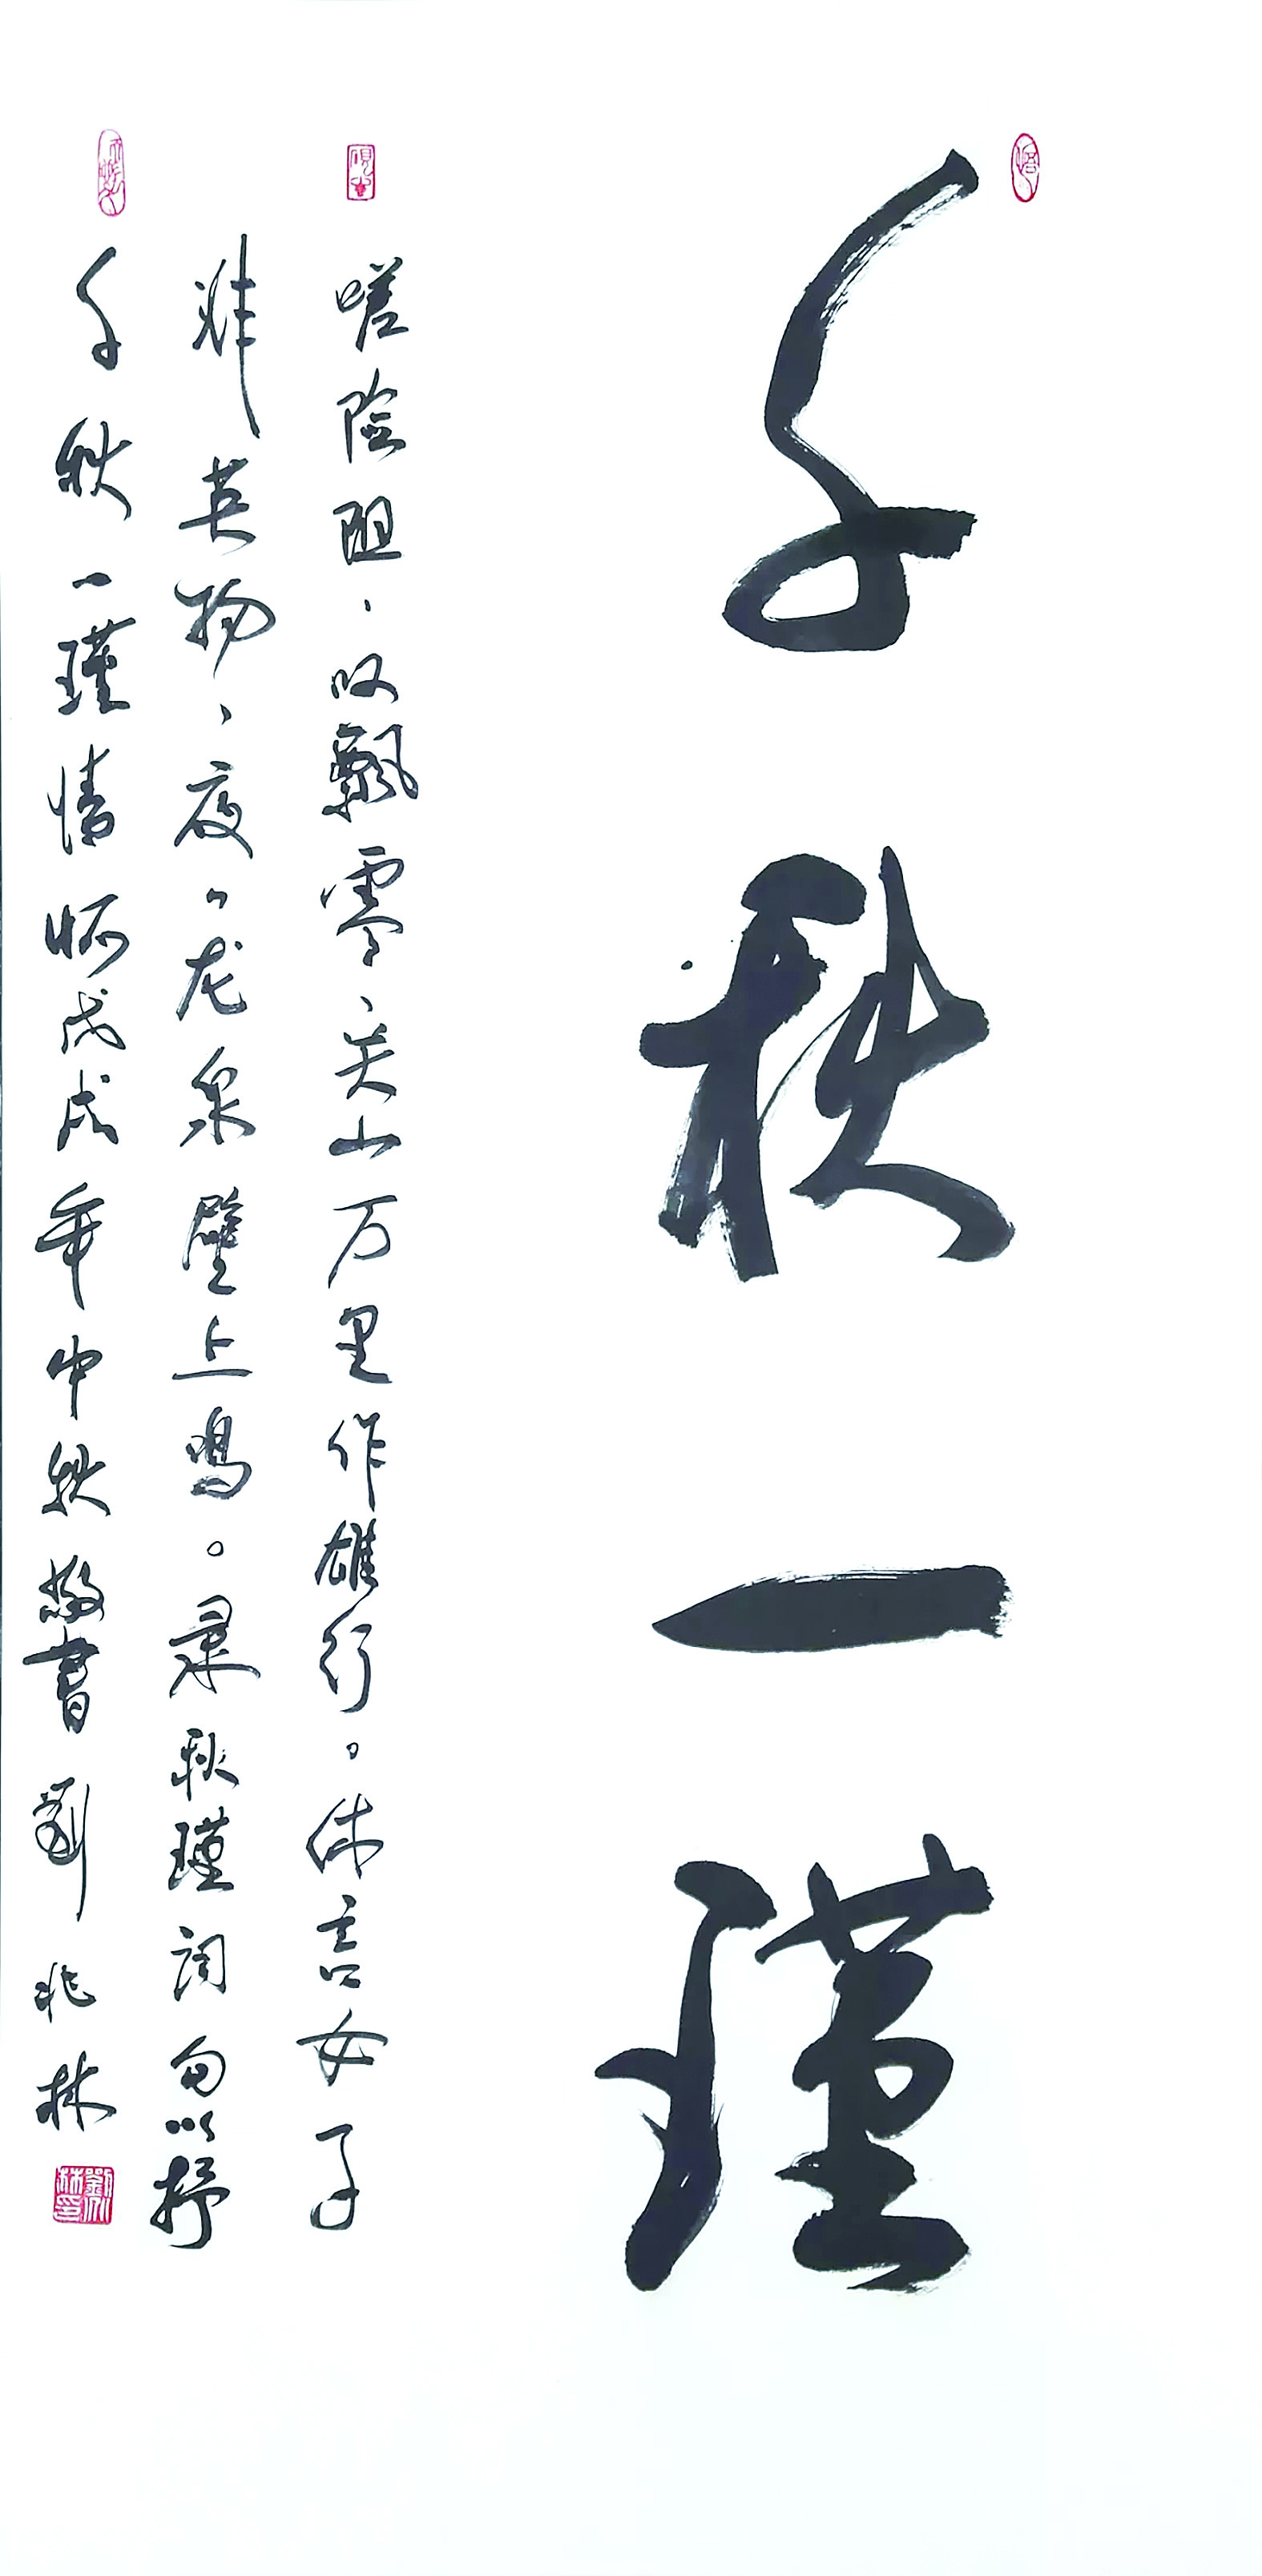 千秋一瑾
嗟险阻、叹飘零、关山万里作雄行。休言女子
非英物、夜々龙泉壁上鸣。录秋瑾词句以抒
千秋一瑾情怀戊戌年中秋敬书劉兆林